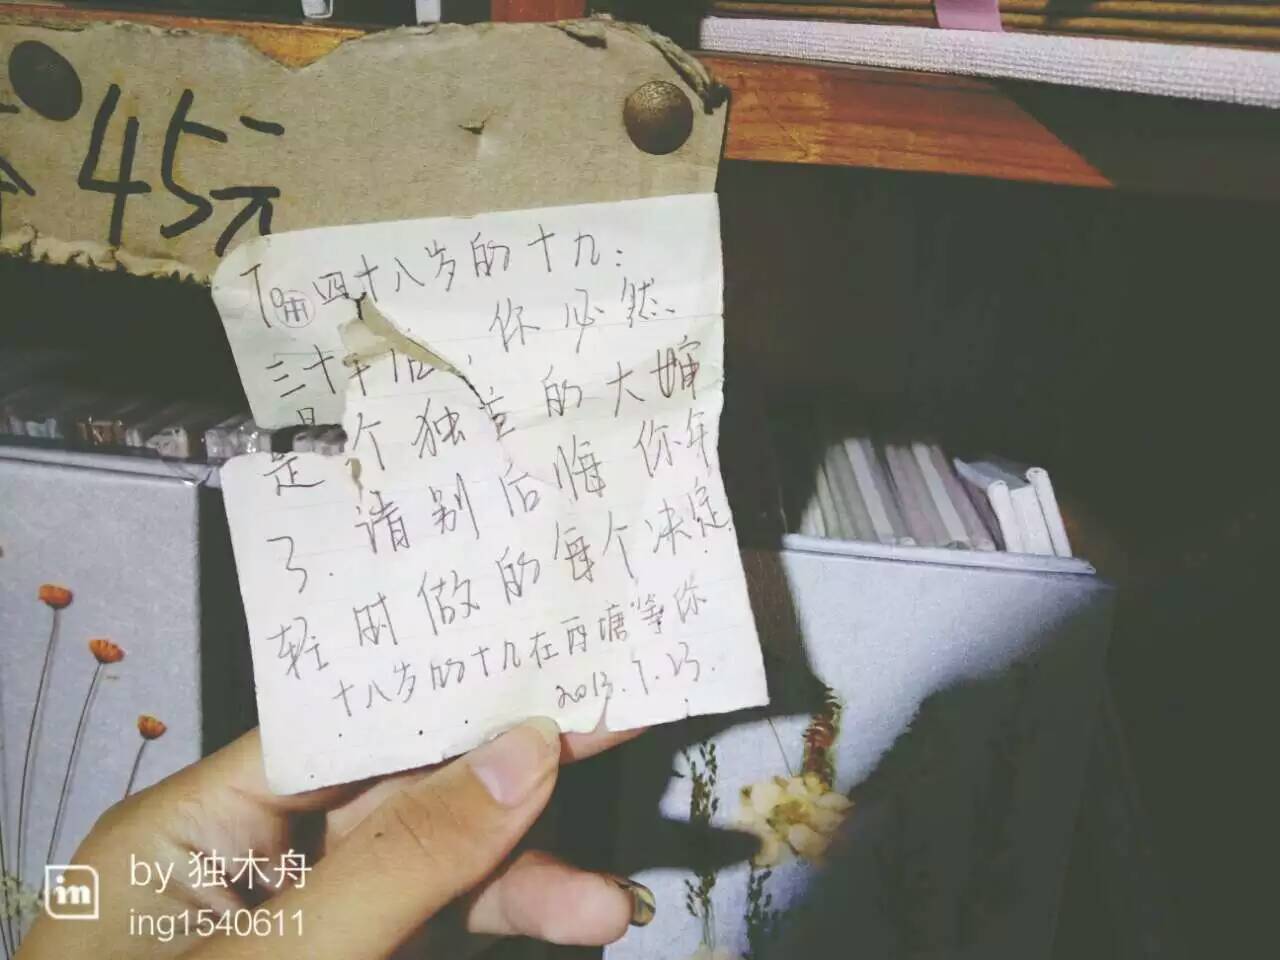 45元
To 四十八岁的十九：
三十年后，你必然
是 个独立的大婶
了. 请别后悔你年
轻时做的每个决定.
十八岁的十九在西塘等你
2013.7.23.
by 独木舟
in
ing1540611